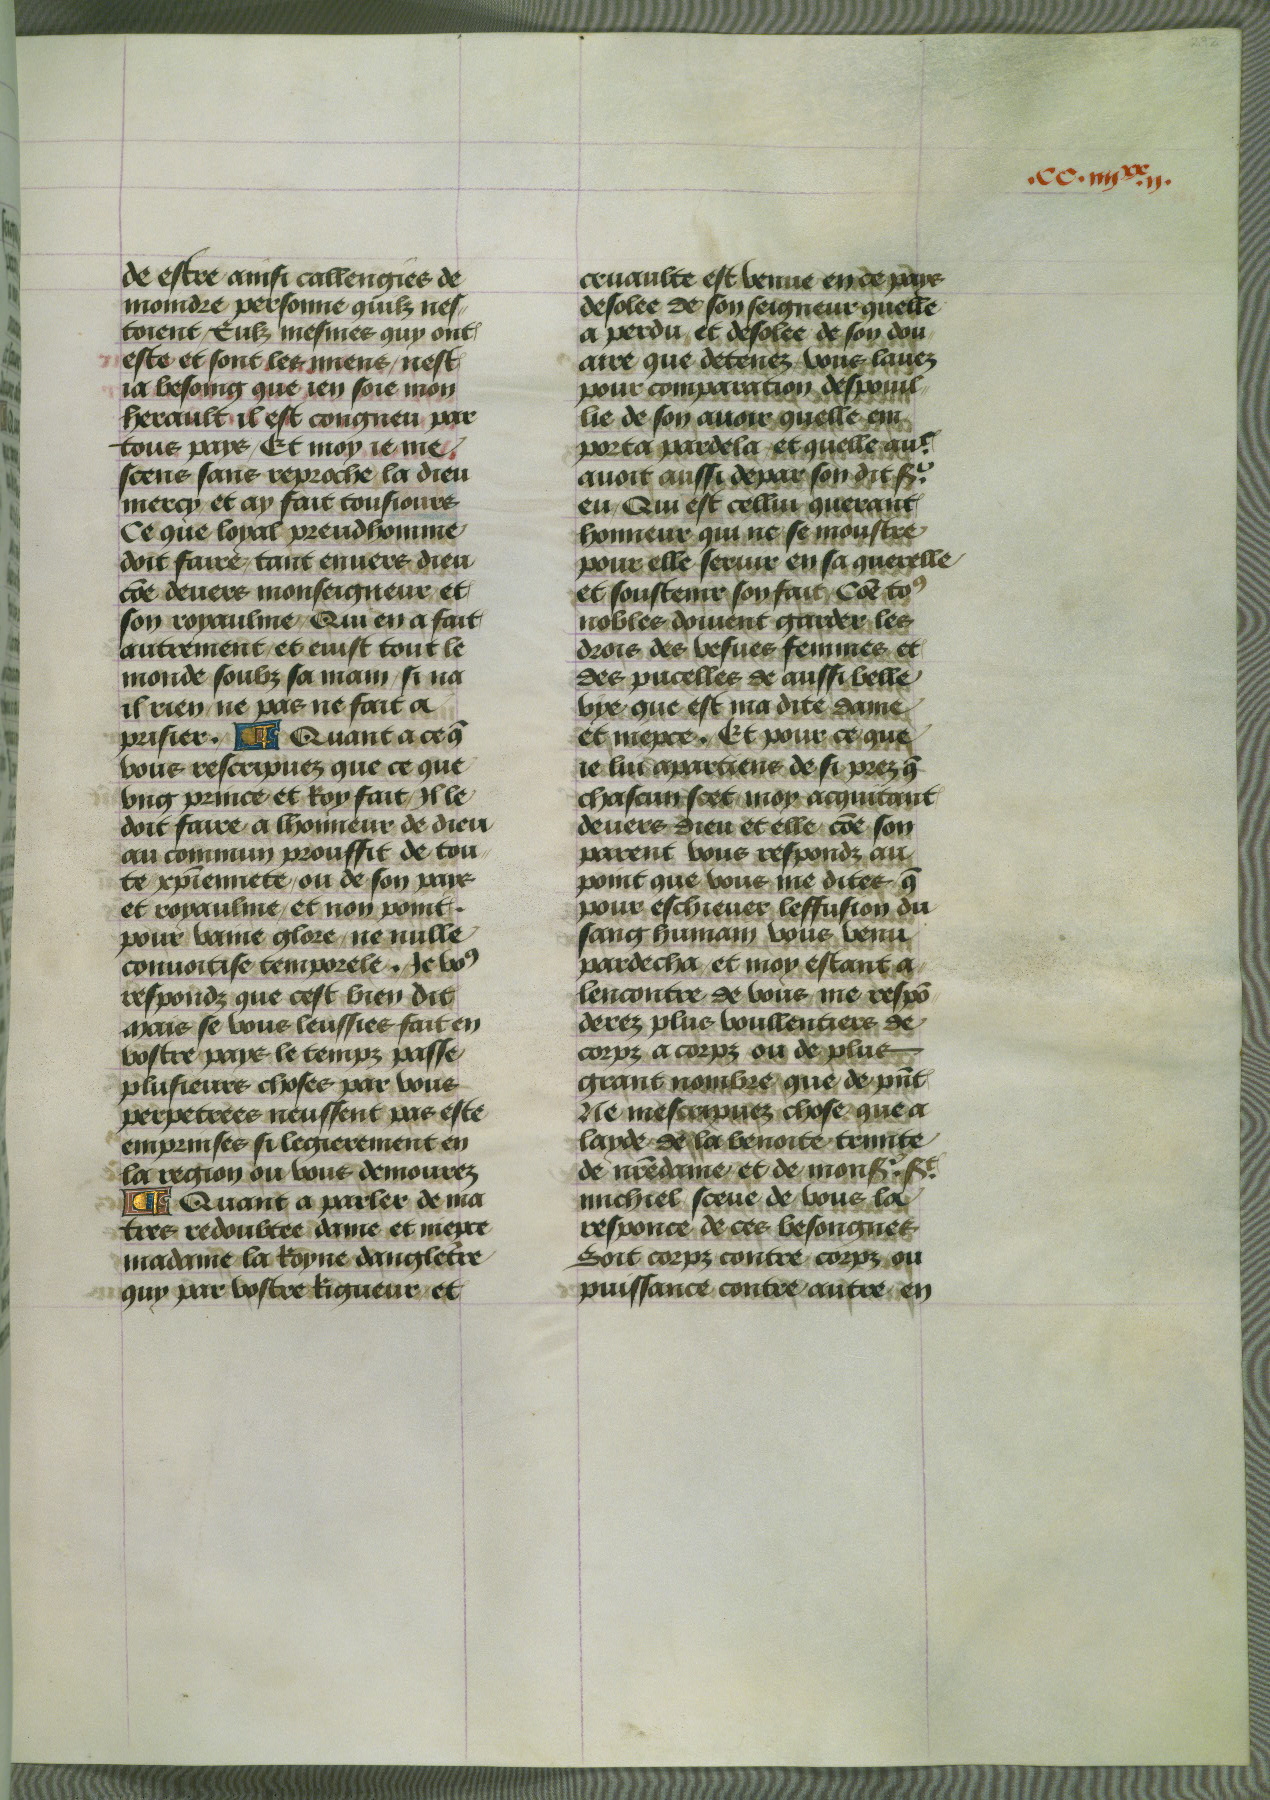 .CC.iiij^xx.ij.
de estre ainsi callengies de
moindre personne quilz nes/
toient / Eulz mesmes quy ont
este et sont les miens / nest
ia besoing que ien soie mon
herault il est congneu par
tous pays / Et moy ie me
scens sans reproche la dieu
mercy et ay fait tousiours
Ce que loyal preudhomme
doit faire / tant enuers dieu
cõe deuers monseigneur et
son royaulme / Qui en a fait
autrement / et euist tout le
monde soubz sa main / si na
il rien / ne pas ne fait a
prisier. ¶ Quant a ce q̃
vous rescripuez que ce que
vng prince et Roy fait / Il le
doit faire / a lhonneur de dieu
au commun prouffit de tou/
te xp̃iennete / ou de son pays
et royaulme / et non point.
pour vaine glore / ne nulle
conuoitise temporele . Je voꝰ
respondz que cest bien dit
Mais se vous leussies fait en
vostre pays le tempz passe
plusieurs choses par vous
perpetrees neussent pas este
emprinses si legierement en
la region ou vous demourez
¶ Quant a parler de ma
tres redoubtee dame et niepce
madame la Royne dangleterre
quy par vostre Rigueur / et
cruaulte est venue en ce pays
desolee de son seigneur quelle
a perdu / et desolee de son dou
aire que detenez / vous lauez
pour comparation despouil/
lie de son auoir quelle em
porta pardela / et quelle
auoit aussi depar son dit sr̃
eu / Qui est cellui querant
honneur qui ne se moustre
pour elle seruir en sa querelle
et soustenir son fait / Cõe toꝰ
nobles doiuent garder les
drois des vesues femmes et
des pucelles de aussi belle
vye que est ma dite dame
et niepce . Et pour ce que
ie lui apartiens de si prez q̃
chascun scet / moy acquitant
deuers dieu et elle cõe son
parent vous respondz au
point que vous me dites q̃
pour eschieuer leffusion du
sang humain vous venu
pardecha / et moy estant a
lencontre de vous me respõ
derez plus voullentiers de
corpz a corpz ou de plus
grant nombre que de pñt
Ne mescripuez chose que a
layde de la benoite trinite
de nr̃edame et de monsr̃ . st̃
michiel sceue de vous la
responce de ces besongnes
Soit corpz contre corpz ou
puissance contre autre / en